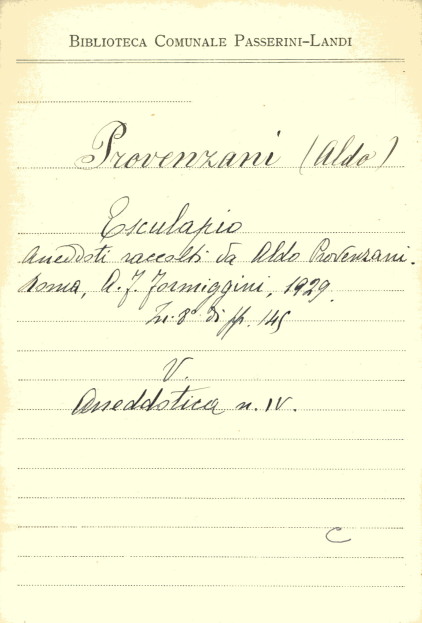 BIBLIOTECA COMUNALE PASSERINI-LANDI
Provenzani (Aldo)
Esculapio
Aneddoti raccolti da Aldo Provenzani.
Roma, A. F. Formiggini, 1929.
In-8° di pp. 145
V.
Aneddotica n. IV.
C